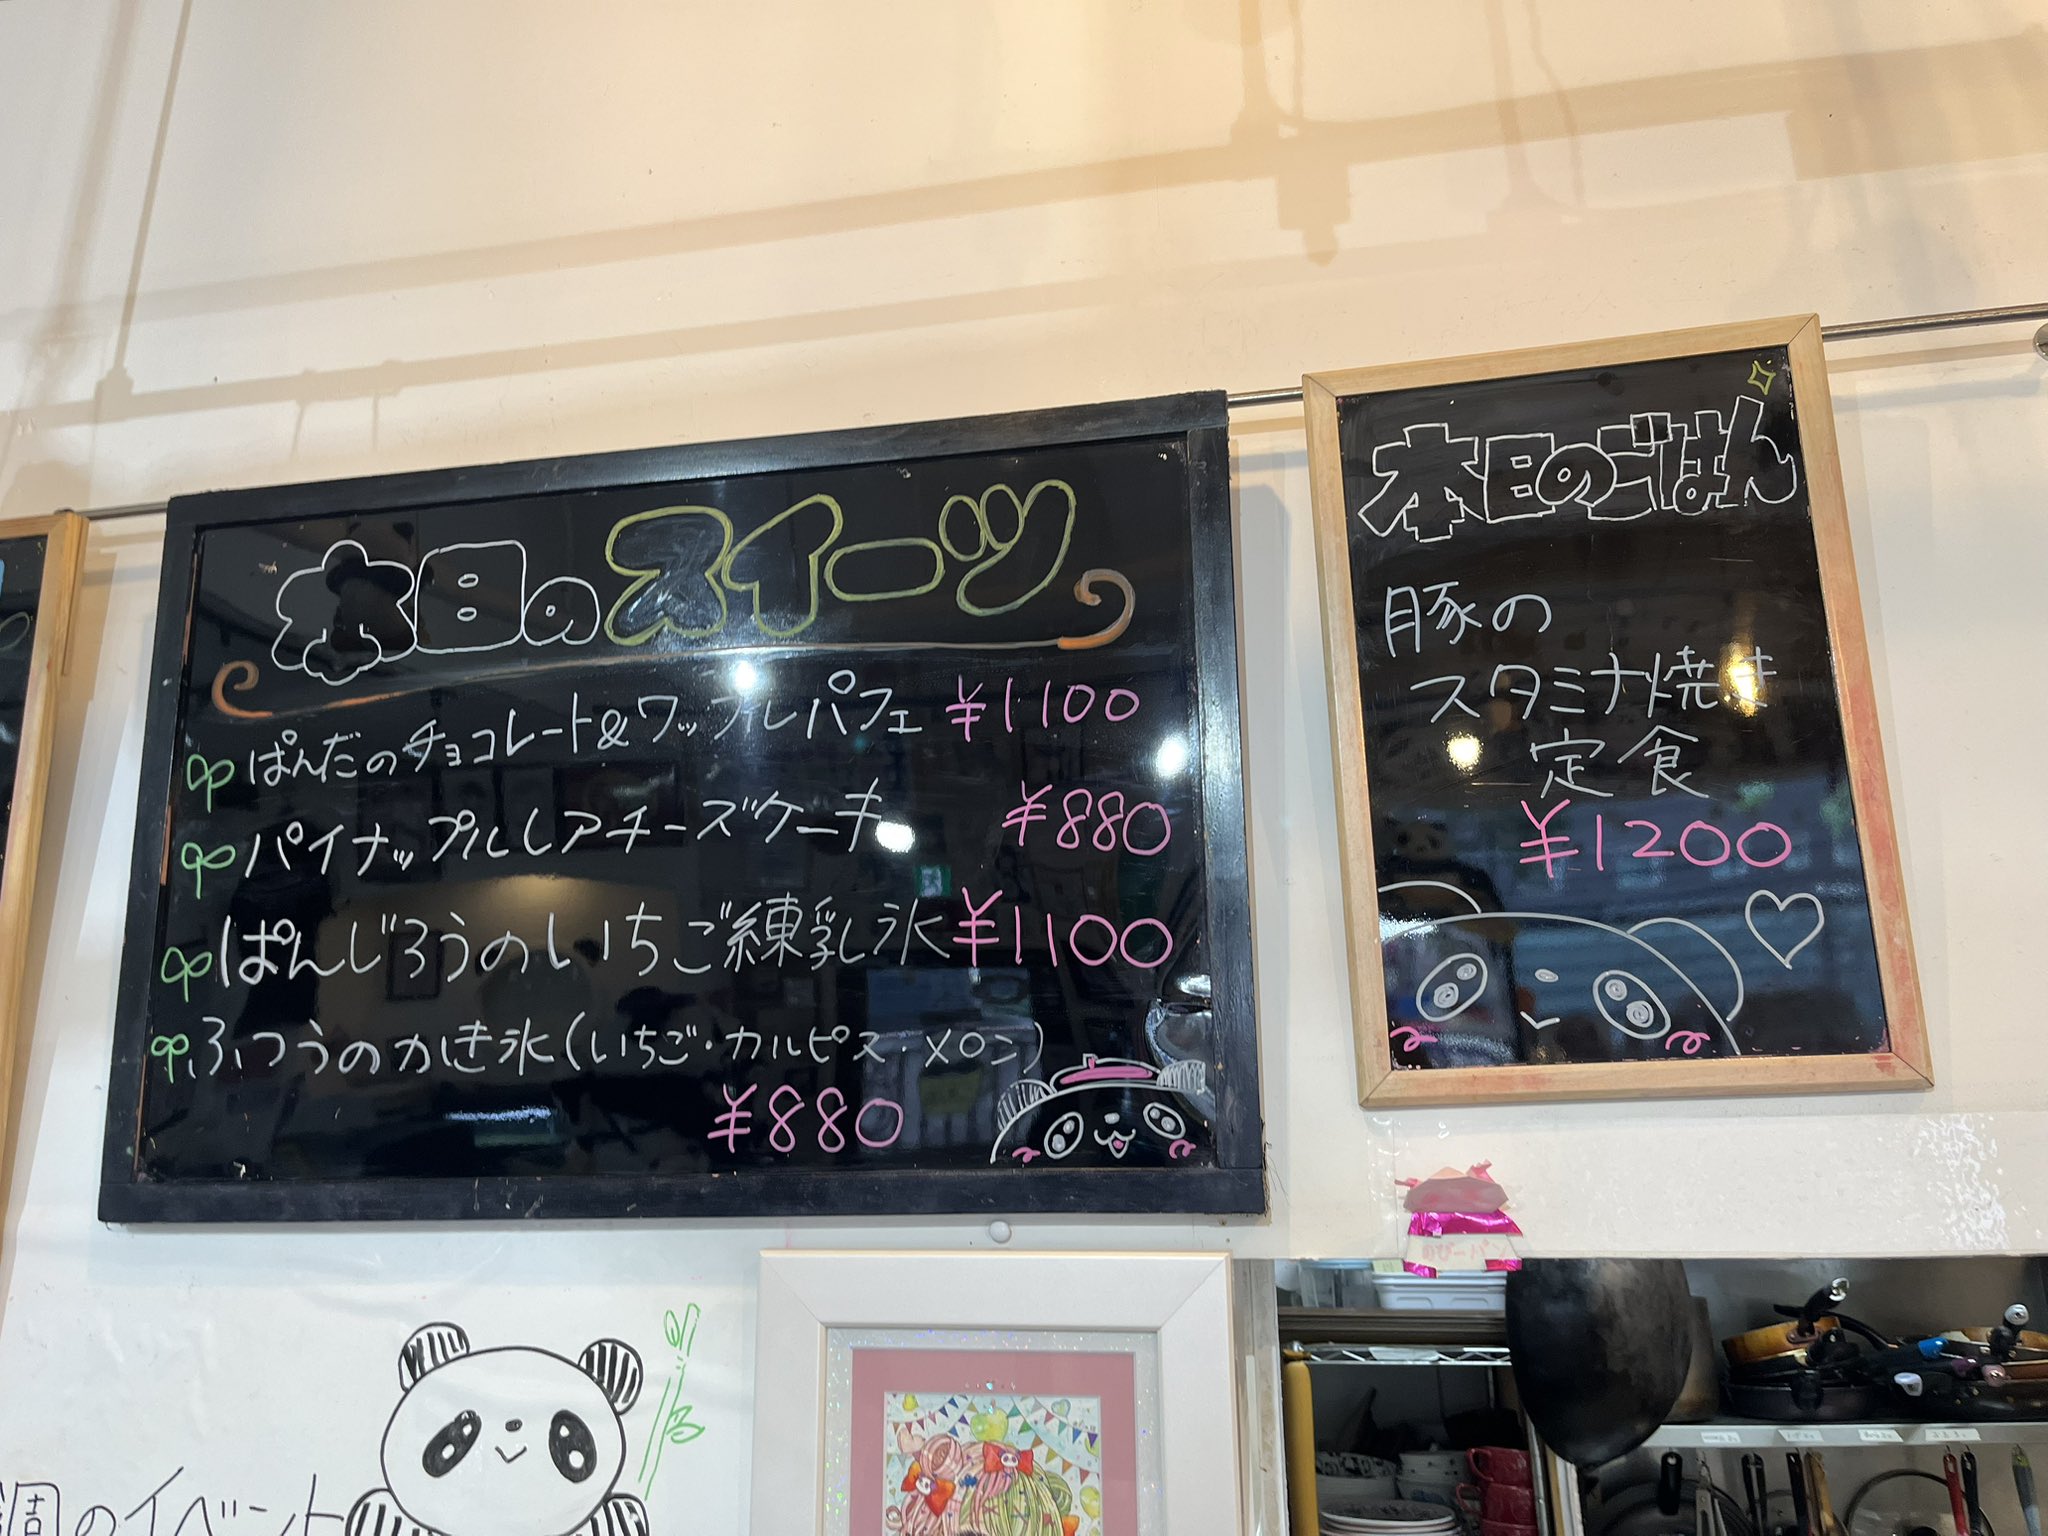 本日のスイーツ
ぱんだのチョコレート&ワッフルパフェ ¥1100
パイナップルレアチーズケーキ ¥880
ぱんじろうのいちご練乳氷 ¥1100
ふつうのかき氷(いちご・カルピス・メロン)
¥880
本日のごはん
豚の
スタミナ焼き
定食
¥1200
週のイベント